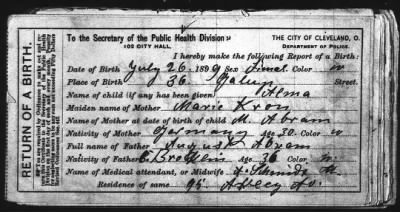 To the Secretary of the Public Health Division:
103 CITY HALL.
THE CITY OF CLEVELAND, O.
DEPARTMENT OF POLICE.
I hereby make the following Report of a Birth:
Date of Birth July 26. 1899 Sex Femal Color w
Place of Birth 36. Street.
Name of child (if any has been given) Alma
Maiden name of Mother Marie Kron
Name of Mother at date of birth of child M. Abram
Nativity of Mother Germany age 30. Color w
Full name of Father August Abram
Nativity of Father age 36 Color w.
Name of Medical attendant, or Midwife Schmidt
Residence of same 95. Abbey Av.
RETURN OF A BIRTH.